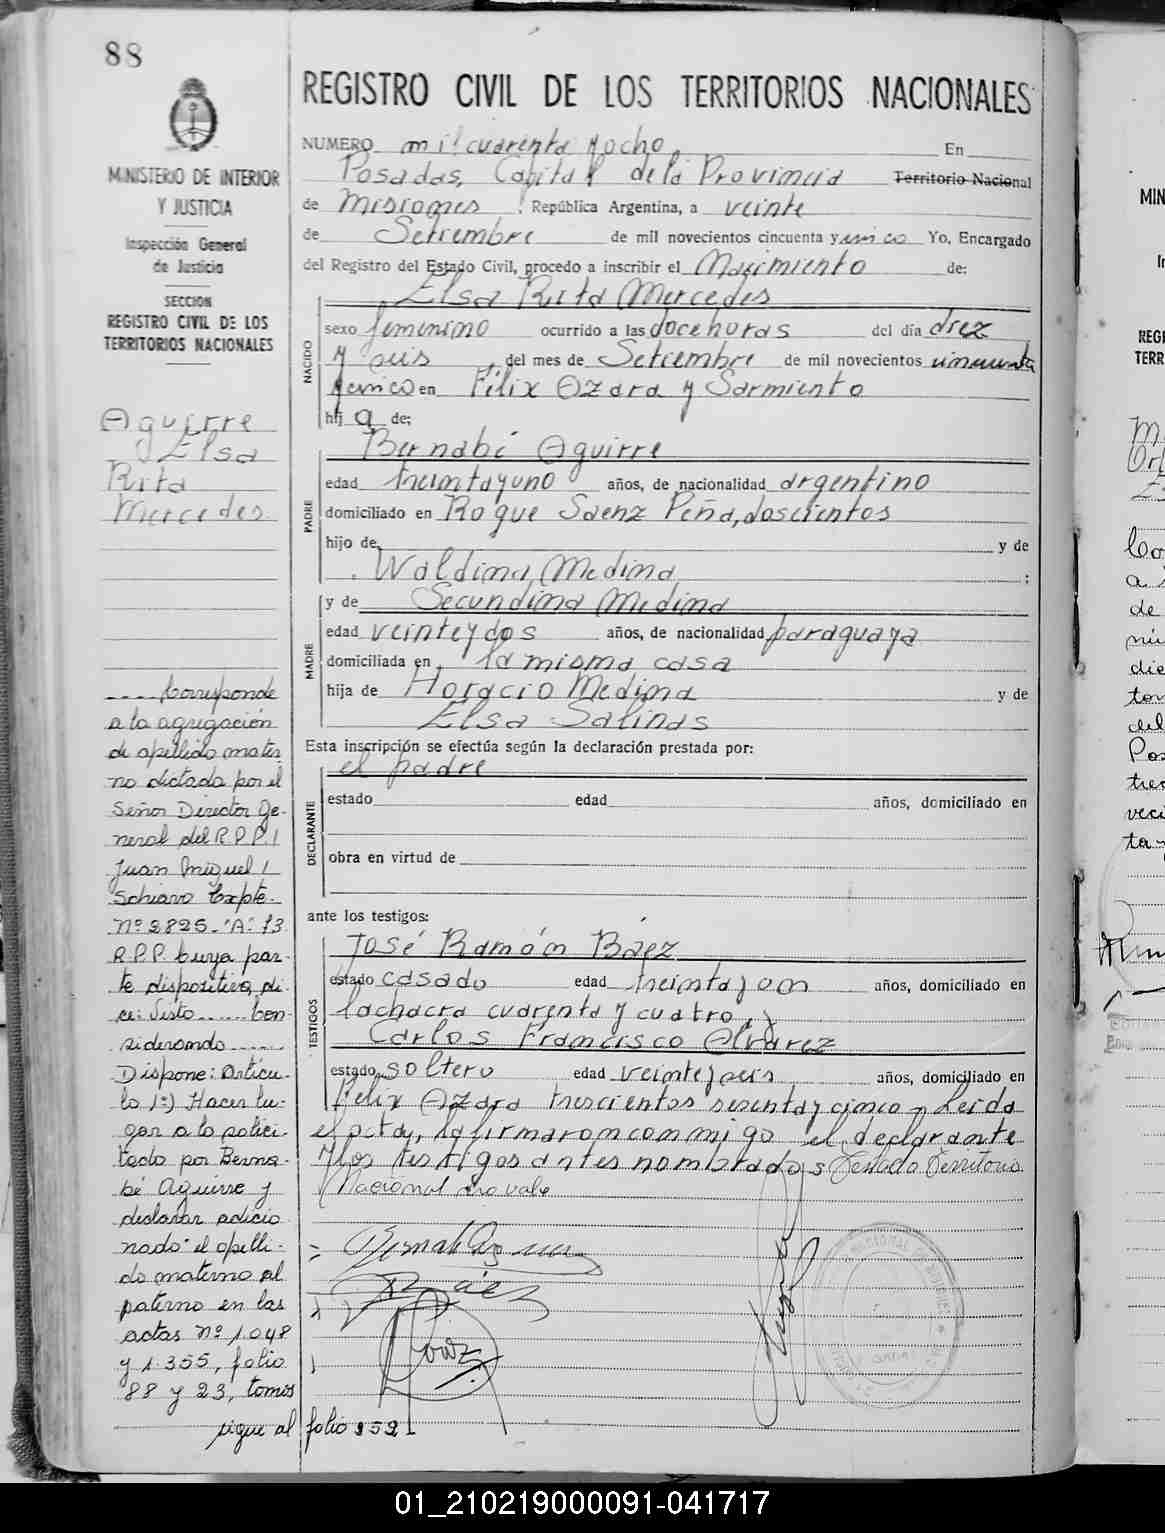 88
MINISTERIO DE INTERIOR
Y JUSTICIA
Inspección General
de Justicia
SECCION
REGISTRO CIVIL DE LOS
TERRITORIOS NACIONALES
Aguirre
Elsa
Rita
Mercedes
.... Corresponde
a la agregación
de apellido mater
no dictada por el
Señor Director Ge-
neral del R.P.P.
Juan Miguel
Schiavo Expte.
Nº 2825-"A"-73
R.P.P. Cuya par-
te dispositiva di
ce: Visto ...... Con-
siderando .....
Dispone: Artícu-
lo 1º) Hacer lu-
gar a lo solici-
tado por Berna-
bé Aguirre y
declarar adicio
nado el apelli-
do materno al
paterno en las
actas nº 1.048
y 1.355, folio
88 y 23, tomos
sigue al folio 252
REGISTRO CIVIL DE LOS TERRITORIOS NACIONALES
NUMERO mil cuarenta y ocho En
Posadas, Capital de la Provincia Territorio Nacional
de Misiones, República Argentina, a veinte
de Setiembre de mil novecientos cincuenta y cinco Yo, Encargado
del Registro del Estado Civil, procedo a inscribir el Nacimiento de:
Elsa Rita Mercedes
NACIDO
sexo femenino ocurrido a las doce horas del día diez
y seis del mes de Setiembre de mil novecientos cincuenta
y cinco en Félix Azara y Sarmiento
hija de:
PADRE
Bernabé Aguirre
edad treinta y uno años, de nacionalidad argentino
domiciliado en Roque Saenz Peña, doscientos
hijo de y de
Waldina Medina ;
MADRE
y de Secundina Medina
edad veinte y dos años, de nacionalidad paraguaya
domiciliada en la misma casa
hija de Horacio Medina y de
Elsa Salinas
Esta inscripción se efectúa según la declaración prestada por:
el padre
DECLARANTE
estado edad años, domiciliado en
obra en virtud de
ante los testigos:
TESTIGOS
José Ramón Báez
estado casado edad treinta y años, domiciliado en
la chacra cuarenta y cuatro, y
Carlos Francisco Alvarez
estado soltero edad veinte y seis años, domiciliado en
Félix Azara trescientos sesenta y cinco. Leida
el acta, la firmaron conmigo el declarante
y los testigos antes nombrados Testado Territorio
Nacional no vale
01_210219000091-041717